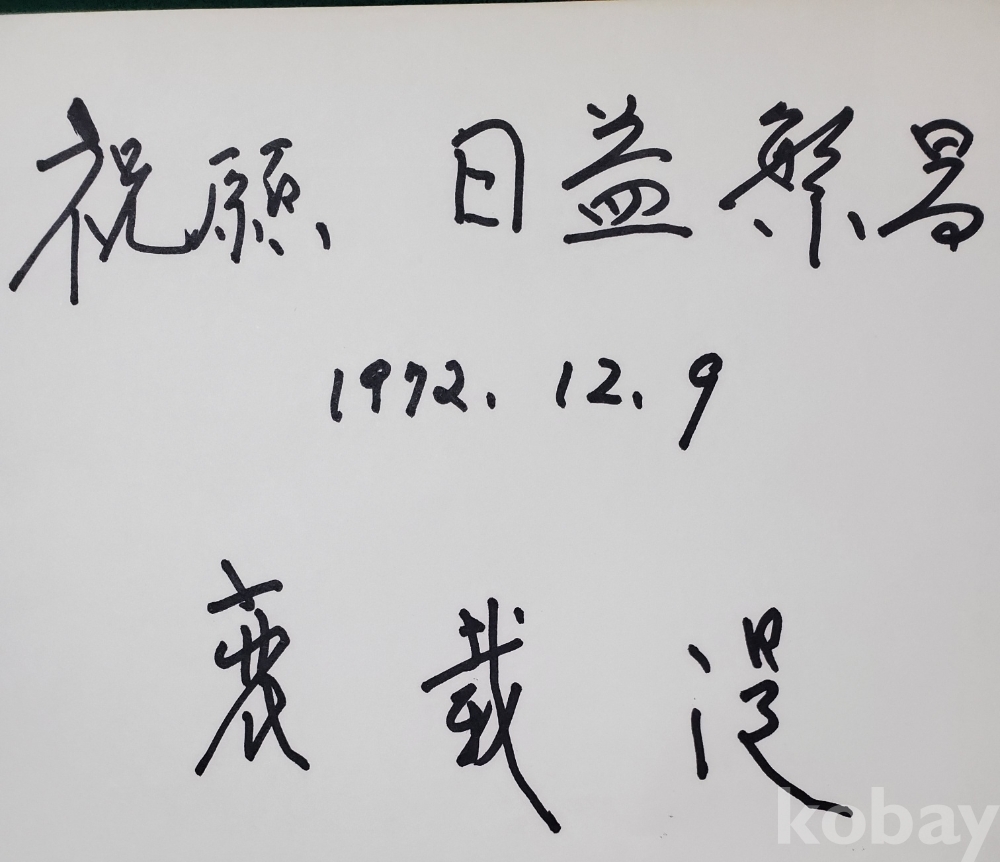 祝願 日益繁昌
1972. 12. 9
裵載湜
kobay